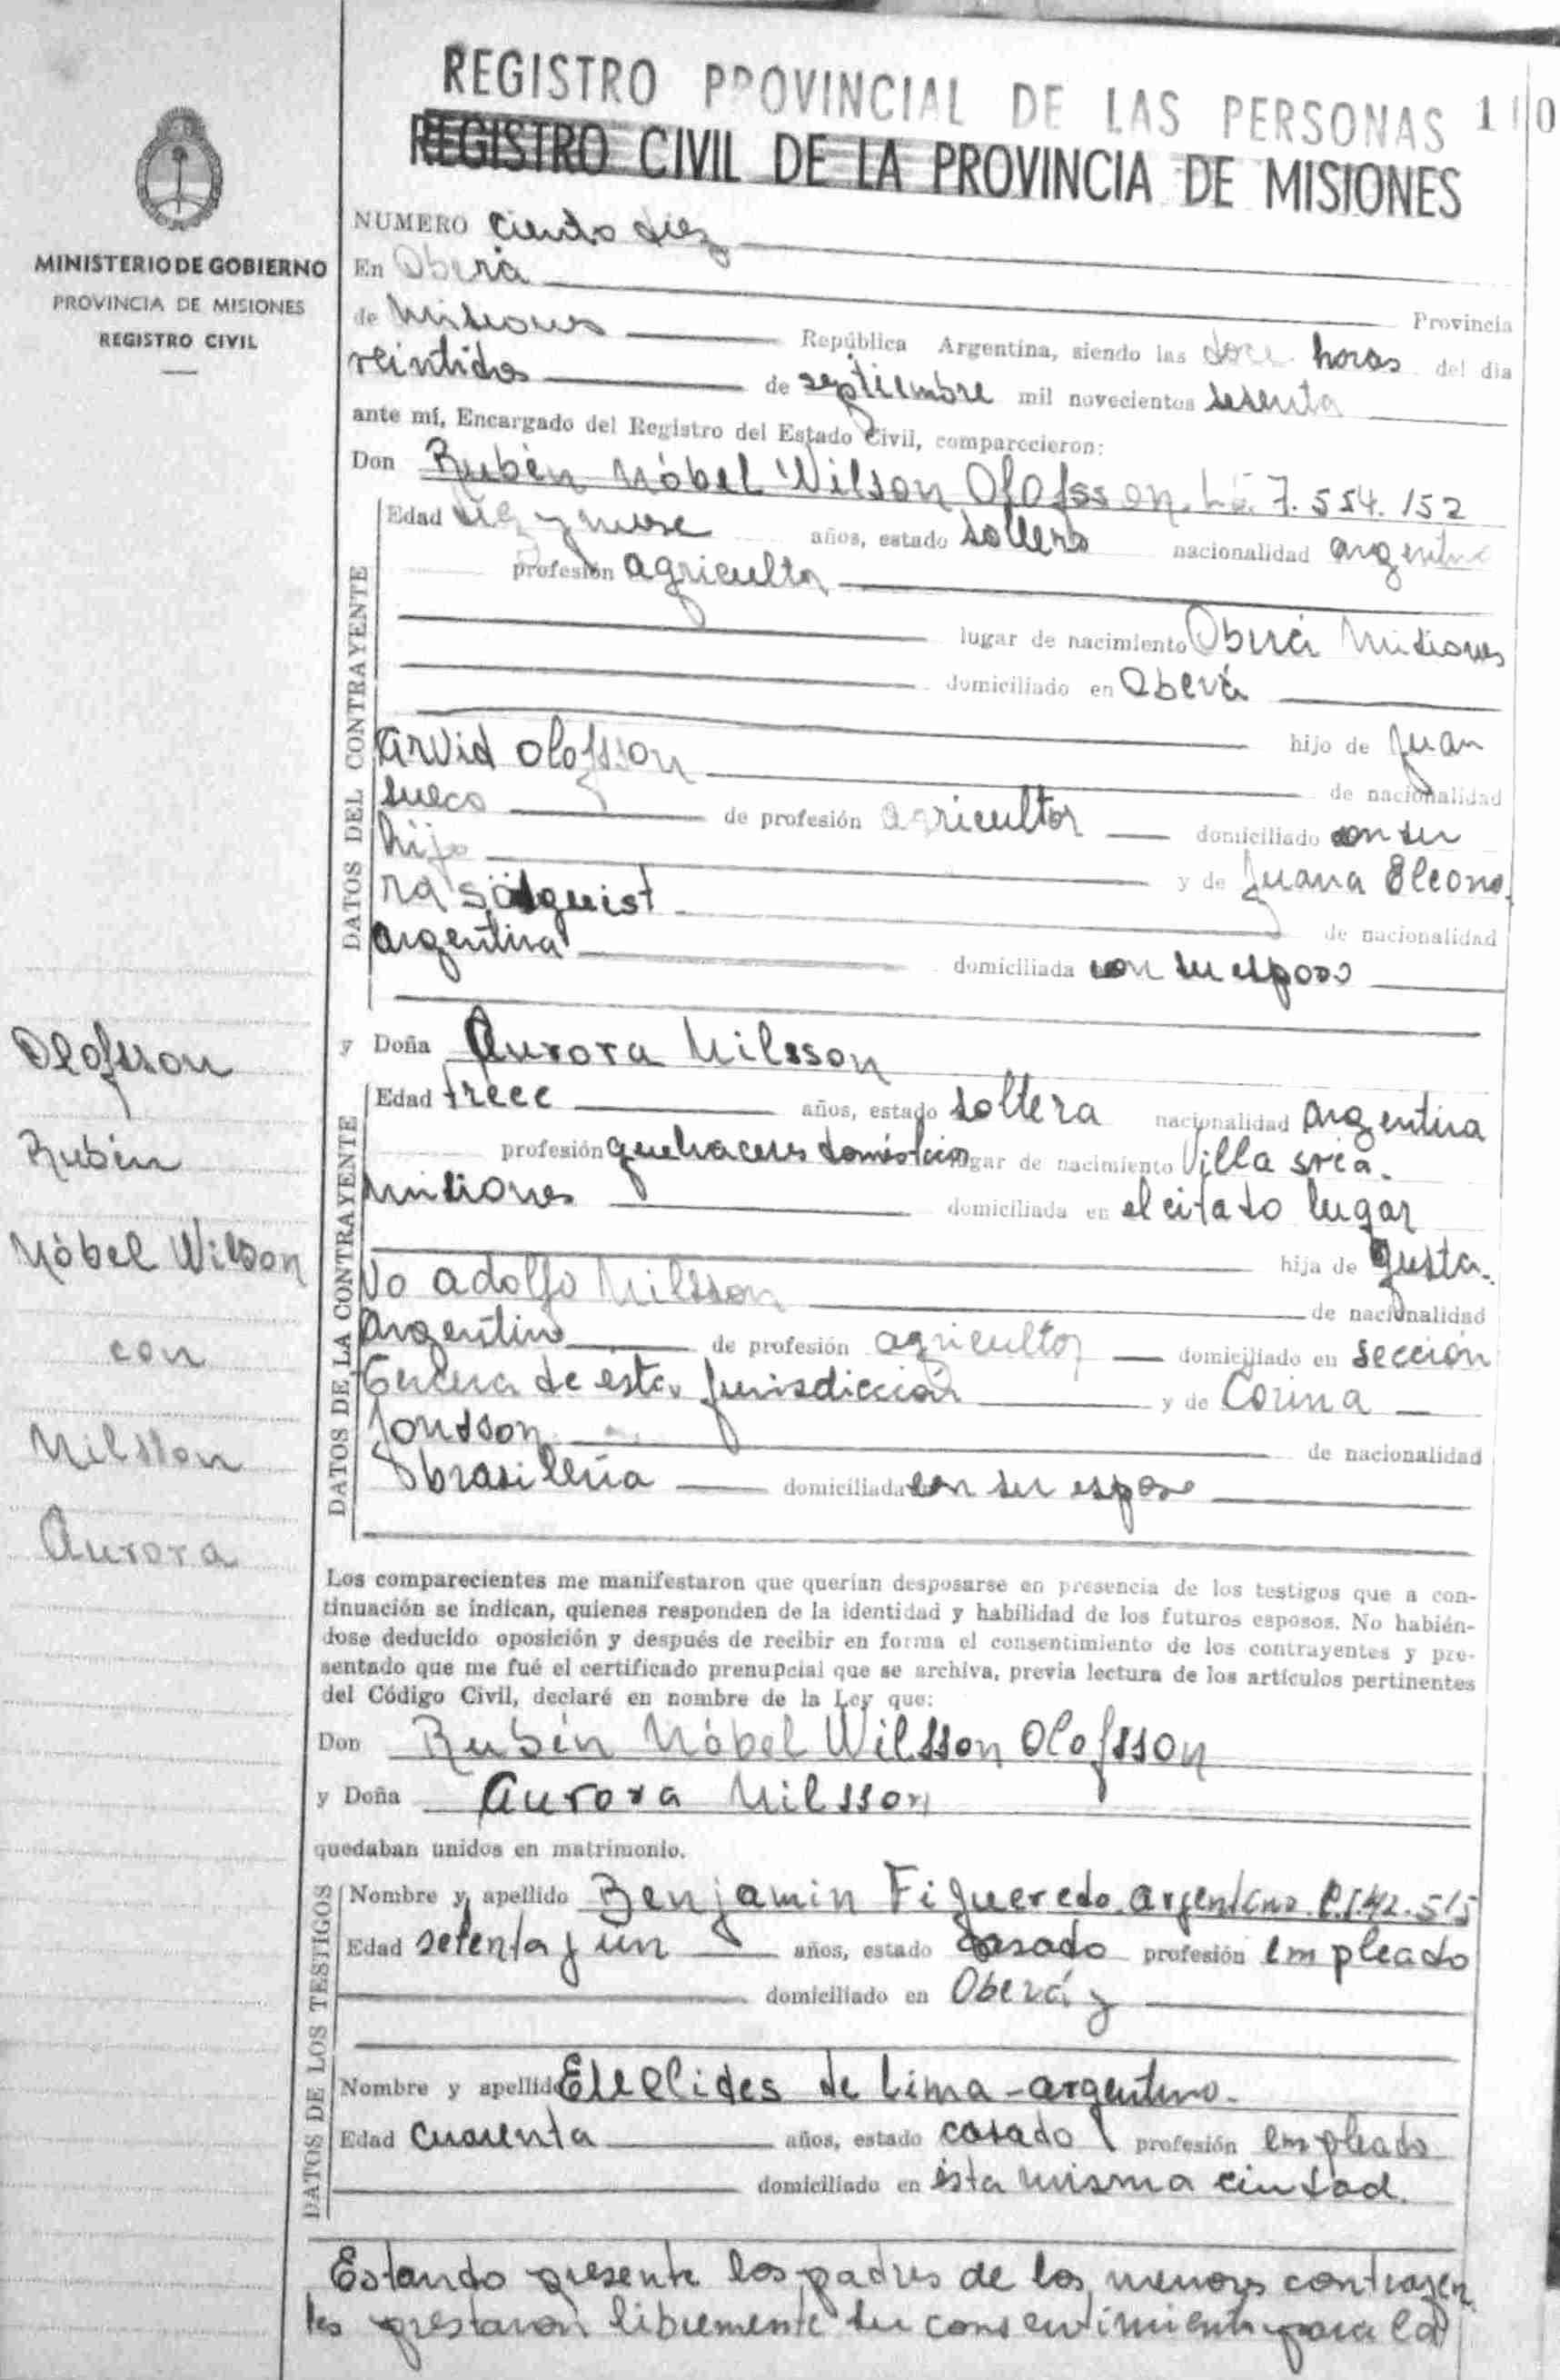 REGISTRO PROVINCIAL DE LAS PERSONAS 110
REGISTRO CIVIL DE LA PROVINCIA DE MISIONES
MINISTERIO DE GOBIERNO
PROVINCIA DE MISIONES
REGISTRO CIVIL
NUMERO ciento diez
En Oberá
Provincia
de Misiones República Argentina, siendo las doce horas del dia
veintidos de septiembre mil novecientos sesenta
ante mí, Encargado del Registro del Estado Civil, comparecieron:
Don Rubén Nóbel Wilson Olofsson. L.E. 7.554.152
DATOS DEL CONTRAYENTE
Edad diez y nueve años, estado soltero nacionalidad argentino
profesión agricultor
lugar de nacimiento Oberá Misiones
domiciliado en Oberá
hijo de Juan
Arvid Olofsson
de nacionalidad
sueco de profesión agricultor domiciliado con su
hijo y de Juana Eleono
ra
de nacionalidad
argentina domiciliada con su esposo
y Doña Aurora Nilsson
DATOS DE LA CONTRAYENTE
Edad trece años, estado soltera nacionalidad argentina
profesión quehaceres domésticos lugar de nacimiento Villa Svea.
Misiones domiciliada en el citado lugar
hija de Gusta-
vo Adolfo Nilsson
de nacionalidad
Argentino de profesión agricultor domiciliado en sección
Tercera de esta jurisdicción y de Corina
Jonsson
de nacionalidad
brasileña domiciliada con su esposo
Olofsson
Rubén
Nóbel Wilson
con
Nilsson
Aurora
Los comparecientes me manifestaron que querían desposarse en presencia de los testigos que a con-
tinuación se indican, quienes responden de la identidad y habilidad de los futuros esposos. No habién-
dose deducido oposición y después de recibir en forma el consentimiento de los contrayentes y pre-
sentado que me fué el certificado prenupcial que se archiva, previa lectura de los artículos pertinentes
del Código Civil, declaré en nombre de la Ley que:
Don Rubén Nóbel Wilsson Olofsson
y Doña Aurora Nilsson
quedaban unidos en matrimonio.
DATOS DE LOS TESTIGOS
Nombre y apellido Benjamin Figueredo argentino C.I. 42.515
Edad setenta y un años, estado casado profesión empleado
domiciliado en Oberá y
Nombre y apellido Euclides de Lima - argentino.
Edad cuarenta años, estado casado profesión empleado
domiciliado en ésta misma ciudad.
Estando presente los padres de los menores contrayen
tes prestaron libremente su consentimiento para la